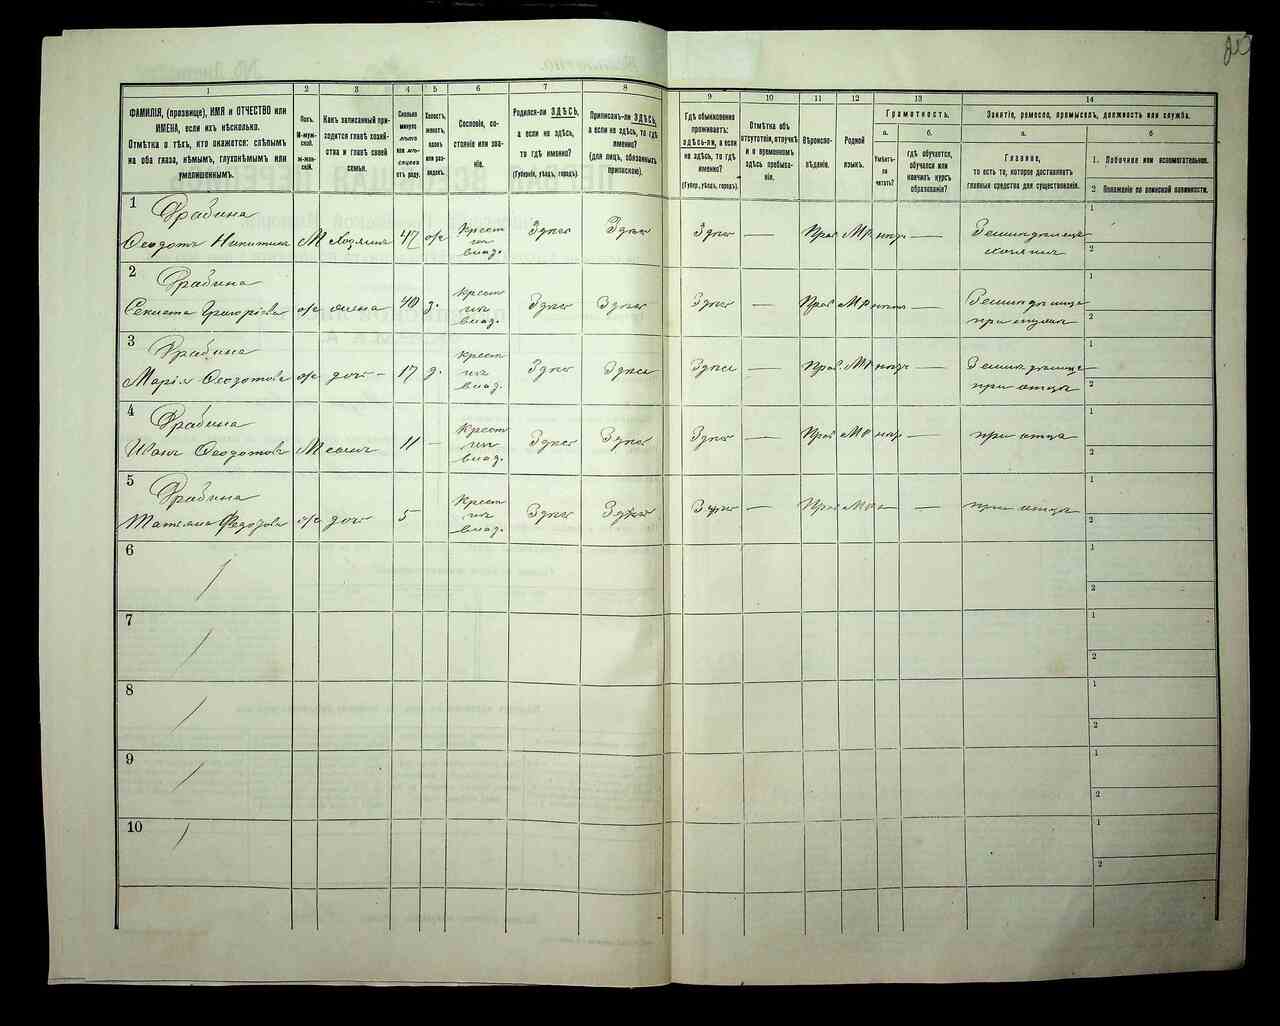 1
2
3
4
5
6
7
8
9
10
11
12
13
14
ФАМИЛІЯ, (прозвище), ИМЯ и ОТЧЕСТВО или ИМЕНА, если ихъ нѣсколько.
Отмѣтка о тѣхъ, кто окажется: слѣпымъ на оба глаза, нѣмымъ, глухонѣмымъ или умалишеннымъ.
Полъ.
М-муж-
ской.
Ж-жен-
скій.
Какъ записанный при-
ходится главѣ хозяй-
ства и главѣ своей
семьи.
Сколько
минуло
лѣтъ
или мѣ-
сяцевъ
отъ роду.
Холостъ,
женатъ,
вдовъ
или раз-
веденъ.
Сословіе, со-
стояніе или зва-
ніе.
Родился-ли ЗДѢСЬ,
а если не здѣсь,
то гдѣ именно?
(Губернія, уѣздъ, городъ).
Приписанъ-ли ЗДѢСЬ,
а если не здѣсь, то гдѣ
именно?
(для лицъ, обязанныхъ
припискою).
Гдѣ обыкновенно
проживаетъ:
здѣсь-ли, а если
не здѣсь, то гдѣ
именно?
(Губер., уѣздъ, городъ).
Отмѣтка объ
отсутствіи, отлучкѣ
и о временномъ
здѣсь пребыва-
ніи.
Вѣроиспо-
вѣданіе.
Родной
языкъ.
Грамотность.
а.
Умѣетъ-
ли
читать?
б.
гдѣ обучается,
обучался или
кончилъ курсъ
образованія?
Занятіе, ремесло, промыселъ, должность или служба.
а.
Главное,
то есть то, которое доставляетъ
главныя средства для существованія.
б
1. Побочное или вспомогательное.
2 Положеніе по воинской повинности.
1
Драбина
Ѳеодотъ Никитинъ М Хозяинъ 47 ж Крест изъ влад. Здѣсь Здѣсь Здѣсь — Прав МР — Земледѣлецъ хозяинъ
1
2
2
Драбина
Григоріева ж жена 40 з. Крест изъ влад. Здѣсь Здѣсь Здѣсь — Прав МР — Земледѣлица при мужѣ
1
2
3
Драбина
Марія Ѳеодотова ж дочь 17 д. Крест изъ влад. Здѣсь Здѣсь Здѣсь — Прав МР — Земледѣлица при отцѣ
1
2
4
Драбина
Иванъ Ѳеодотовъ М сынъ 11 — Крест изъ влад. Здѣсь Здѣсь Здѣсь — Прав МР — при отцѣ
1
2
5
Драбина
Татьяна Федотова ж дочь 5 Крест изъ влад. Здѣсь Здѣсь Здѣсь — Прав МР — при отцѣ
1
2
6
1
2
7
1
2
8
1
2
9
1
2
10
1
2